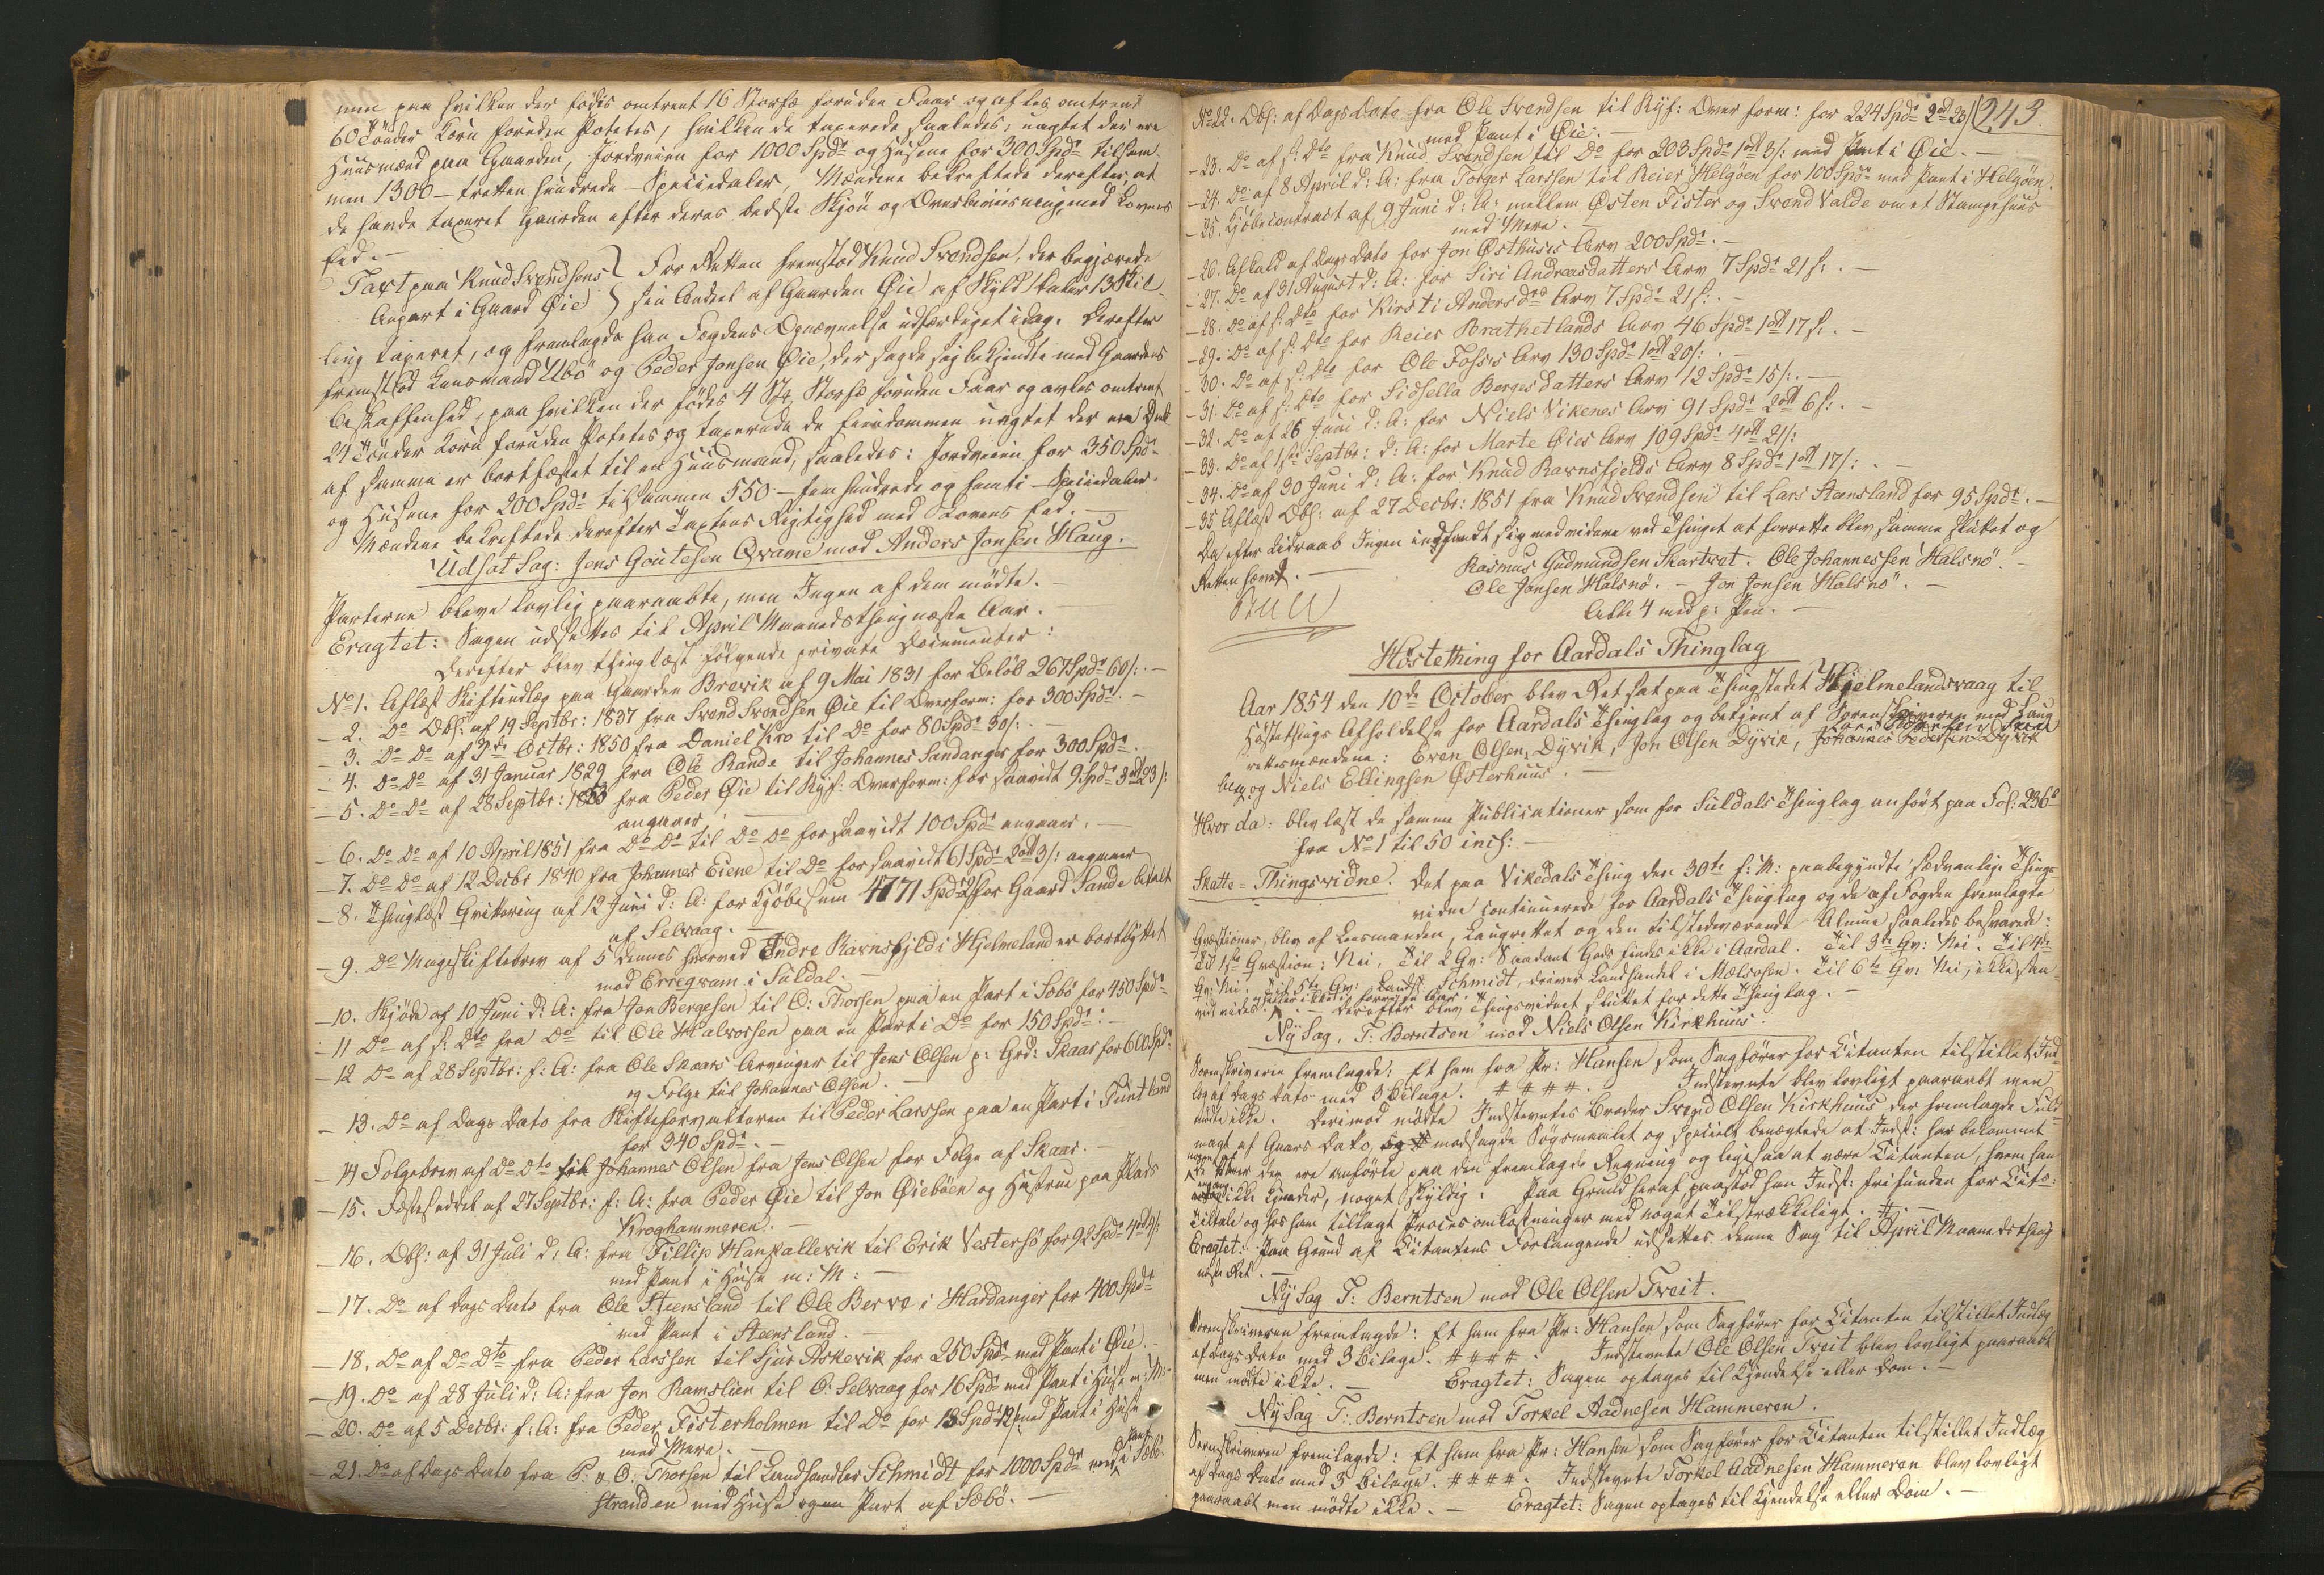 men paa hvilken der födes omtrent 16 Storfæ foruden Faar og afles omtrent
60 Tönder Korn foruden Potetes, hvilken de taxerede saaledes, uagtet der ere
Huusmænd paa Gaarden, Jordveien for 1000 Spdr og Husene for 300 Spdr tilsam-
men 1300 – tretten hundrede – Speciedaler, Mændene bekræftede derefter, at
de havde taxeret Gaarden efter deres bedste Skjön og Overbeviisning, med Lovens
Eed. –
Taxt paa Knud Svendsens } For Retten fremstod Knud Svendsen, der begjærede
Anpart i Gaard Øie } sin Andeel af Gaarden Øie af Skyld 1 Daler 13 Skil-
ling taxeret, og fremlagde han Fogdens Opnævnelse udfærdiget idag. Derefter
fremstod Lensmand Ubö og Peder Jonsen Øie, der sagde sig bekjendte med Gaardens
Beskaffenhed, paa hvilken der födes 4 St. Storfæ foruden Faar og avles omtrent
24 Tönder Korn foruden Potetes og taxerede de Eiendommen uagtet der en Deel
af samme er bortfæstet til en Huusmand, saaledes: Jordveien for 350 Spdr
og Husene for 200 Spdr tilsammen 550 – fem hundrede og femti – Speciedaler.
Mændene bekræftede derefter Taxtens Rigtighed med Lovens Eed. –
Udsat Sag: Jens Goutesen Qvame mod Anders Jonsen Haug.
Parterne bleve lovlig paaraabte, men Ingen af dem mödte. –
Eragtet: Sagen udsættes til April Maanedsthing næste Aar. –
Derefter blev thinglæst fölgende private Documenter:
No 1. Aflæst Skifteudlæg paa Gaarden Brevik af 9 Mai 1831 for Belöb 267 Spdr 60 s. –
– 2. Do Obl: af 19 Septbr: 1837 fra Svend Svendsen Øie til Overform: for 300 Spdr. –
– 3. Do Do af 3die Octbr: 1850 fra Daniel Kro til Do for 80 Spdr 30 s. –
– 4. Do Do af 31 Januar 1829 fra Ole Rande til Johannes Sandanger for 300 Spdr.
– 5. Do Do af 28 Septbr: 1853 fra Peder Øie til Ryf: Overform: for saavidt 9 Spdr 3 ort 23 s:
angaaer. –
– 6. Do Do af 10 April 1851 fra Do Do til Do Do for saavidt 100 Spdr angaaer. –
– 7. Do Do af 12 Decbr 1840 fra Johannes Eiene til Do for saavidt 61 Spdr 2 ort 3 s: angaaer
– 8. Thinglæst Qvittering af 12 Juni d: A: for Kjöbesum 4771 Spdr for Gaard Sande betalt
af Selvaag. –
– 9. Do Mageskiftebrev af 5 dennes hvorved Endre Ravnsfjeld i Hjelmeland er bortbyttet
mod Erregvam i Suldal. –
– 10. Skjöde af 10 Juni d: A: fra Jon Bergesen til O: Thorsen paa en Part i Sobö for 450 Spdr
– 11 Do af s: Dto fra Do til Ole Halvorsen paa en Part i Do for 150 Spdr: –
– 12 Do af 28 Septbr: f: A: fra Ole Skaars Arvinger til Jens Olsen p: Grd: Skaar for 600 Spdr
og Folge til Johannes Olsen. –
– 13. Do af Dags Dato fra Skifteforvalteren til Peder Larssen paa en Part i Tuntland
for 340 Spdr. –
– 14 Folgebrev af Do Dto til Johannes Olsen fra Jens Olsen for Folge af Skaar. –
– 15. Fæsteseddel af 27 Septbr: f: A: fra Peder Øie til Jon Øieböen og Hustrue paa Plads
Kroghammeren. –
– 16. Obl: af 31 Juli d: A: fra Fillip Hankallevik til Erik Vestersö for 92 Spdr 4 ort s:
med Pant i Huse m: M: –
– 17. Do af Dags Dato fra Ole Steensland til Ole Berve i Hardanger for 400 Spdr
med Pant i Steensland. –
– 18. Do af Do Dto fra Peder Larssen til Sjur Askevik for 250 Spdr med Pant i Øie. –
– 19. Do af 28 Juli d: A: fra Jon Ramslien til O: Selvaag for 16 Spdr med Pant i Huse m: M: –
– 20. Do af 5 Decbr: f: A: fra Peder Fisterholmen til Do for 13 Spdr 12 s: med Pant i Huse
med Mere. –
– 21. Do af Dags Dato fra P: & O: Thorsen til Landhandler Schmidt for 1000 Spdr med Pant i Sobö-
stranden med Huse og en Part af Sæbö. –
No 22. Obl: af Dags Dato fra Ole Svendsen til Ryf: Over form: for 224 Spdr 2 ort 23 s 243.
med Pant i Øie. –
– 23. Do af s: Dto fra Knud Svendsen til Do for 203 Spdr 1 ort 3 s: med Pant i Øie. –
– 24. Do af 8 April d: A: fra Torger Larssen til Reier Helgöen for 100 Spdr med Pant i Helgöen.
– 25. Kjöbecontract af 9 Juni d: A: mellem Østen Fister og Svend Valde om et Stampehuus
med Mere. –
– 26. Afkald af Dags Dato for Jon Østhuses Arv 200 Spdr. –
– 27. Do af 31 August d: A: for Siri Andreasdatters Arv 7 Spdr 21 s: . –
– 28. Do af s: Dto for Kirsti Andersdrs Arv 7 Spdr 21 s: . –
– 29. Do af s: Dto for Reier Brathetlands Arv 46 Spdr 1 ort 17 s: . –
– 30. Do af s: Dto for Ole Fosses Arv 130 Spdr 1 ort 20 s: . –
– 31. Do af s: Dto for Sidsella Bergesdatters Arv 12 Spdr 15 s: . –
– 32. Do af 26 Juni d: A: for Niels Vikenes Arv 91 Spdr 2 ort 6 s: . –
– 33. Do af 1ste Septbr: d: A: for Marte Øies Arv 109 Spdr 4 ort 21 s:
– 34. Do af 30 Juni d: A: for Knud Ravnsfjelds Arv 8 Spdr 1 ort 17 s: . –
– 35 Aflæst Obl: af 27 Decbr: 1851 fra Knud Svendsen til Lars Steensland for 95 Spdr. –
Da efter Udraab Ingen indfandt sig med videre ved Thinget at forrette blev samme sluttet og
Retten hævet. –
Rasmus Gudmundsen Skartvet. Ole Johannessen Halsnö. –
Ole Jonsen Halsnö. – Jon Jonsen Halsnö. –
Alle 4 med p: Pen. –
Höstething for Aardals Thinglag
Aar 1854 den 10de October blev Ret sat paa Thingstedet Hjelmelandsvaag til
Höstethings Afholdelse for Aardals Thinglag og betjent af Sorenskriveren med Laug-
rettesmændene: Even Olsen Dyvik, Jon Olsen Dyvik, Johannes Pedersen Dyvik
og Niels Ellingsen Østerhuus. –
Hvor da: blev læst de samme Publicationer som for Suldals Thinglag anført paa Fol: 236b
fra No 1 til 50 incl: –
Skatte = Thingsvidne. Det paa Vikedals Thing den 30te f: M: paabegyndte sædvanlige Things-
vidne continuerede for Aardals Thinglag og de af Fogden fremlagte
Qvæstioner, blev af Lensmanden, Laugrettet og den tilstedeværende Almue saaledes besvarede:
Til 1ste Qvæstion: Nei. Til 2 Qv: Saadant Gods findes ikke i Aardal. Til 3de Qv: Nei. Til 4de
Qv: Nei. Til 5te Qv: Landh: Schmidt, driver Landhandel i Mælsosen. Til 6te Qv: Nei, ikke saa-
vidt vides. heller ikke til forrige Aar. – Derefter blev Thingsvidnet sluttet for dette Thinglag. –
Ny Sag, T: Berntsen mod Niels Olsen Kirkhuus.
Sorenskriveren fremlagde: Et ham fra Pr: Hansen som Sagförer for Citanten tilstillet Ind-
læg af Dags Dato med 3 Bilage. # # # #. Indstevnte blev lovligt paaraabt men
mödte ikke. Derimod mödte Indstevntes Broder Svend Olsen Kirkhuus der fremlagde Fuld-
magt af Gaars Dato, # modsagde Sögsmaalet og specielt benægtede at Indst: har bekommet
noget af de Varer der ere anförte paa den fremlagde Regning og ligesaa at være Citanten, hvem han
engang ikke kjender, noget skyldig. Paa Grund heraf paastod han Indst: frifunden for Cits:
Tiltale og hos ham tillagt Procesomkostninger med noget Tilstrækkeligt. # –
Eragtet: Paa Grund af Citantens Forlangende udsættes denne Sag til April Maanedsthing
næste Aar. –
Ny Sag T: Berntsen mod Ole Olsen Tveit.
Sorenskriveren fremlagde: Et ham fra Pr: Hansen som Sagförer for Citanten tilstillet Indlæg
af Dags Dato med 3 Bilage. # # # #. Indstevnte Ole Olsen Tveit blev lovligt paaraabt
men mödte ikke. – Eragtet: Sagen optages til Kjendelse eller Dom. –
Ny Sag T: Berntsen mod Torkel Aadnesen Hammeren.
Sorenskriveren fremlagde: Et ham fra Pr: Hansen som Sagförer for Citanten tilstillet Indlæg
af Dags Dato med 3 Bilage. # # # #. Indstevnte Torkel Aadnesen Hammeren blev lovligt
paaraabt men mödte ikke. – Eragtet: Sagen optages til Kjendelse eller Dom. –